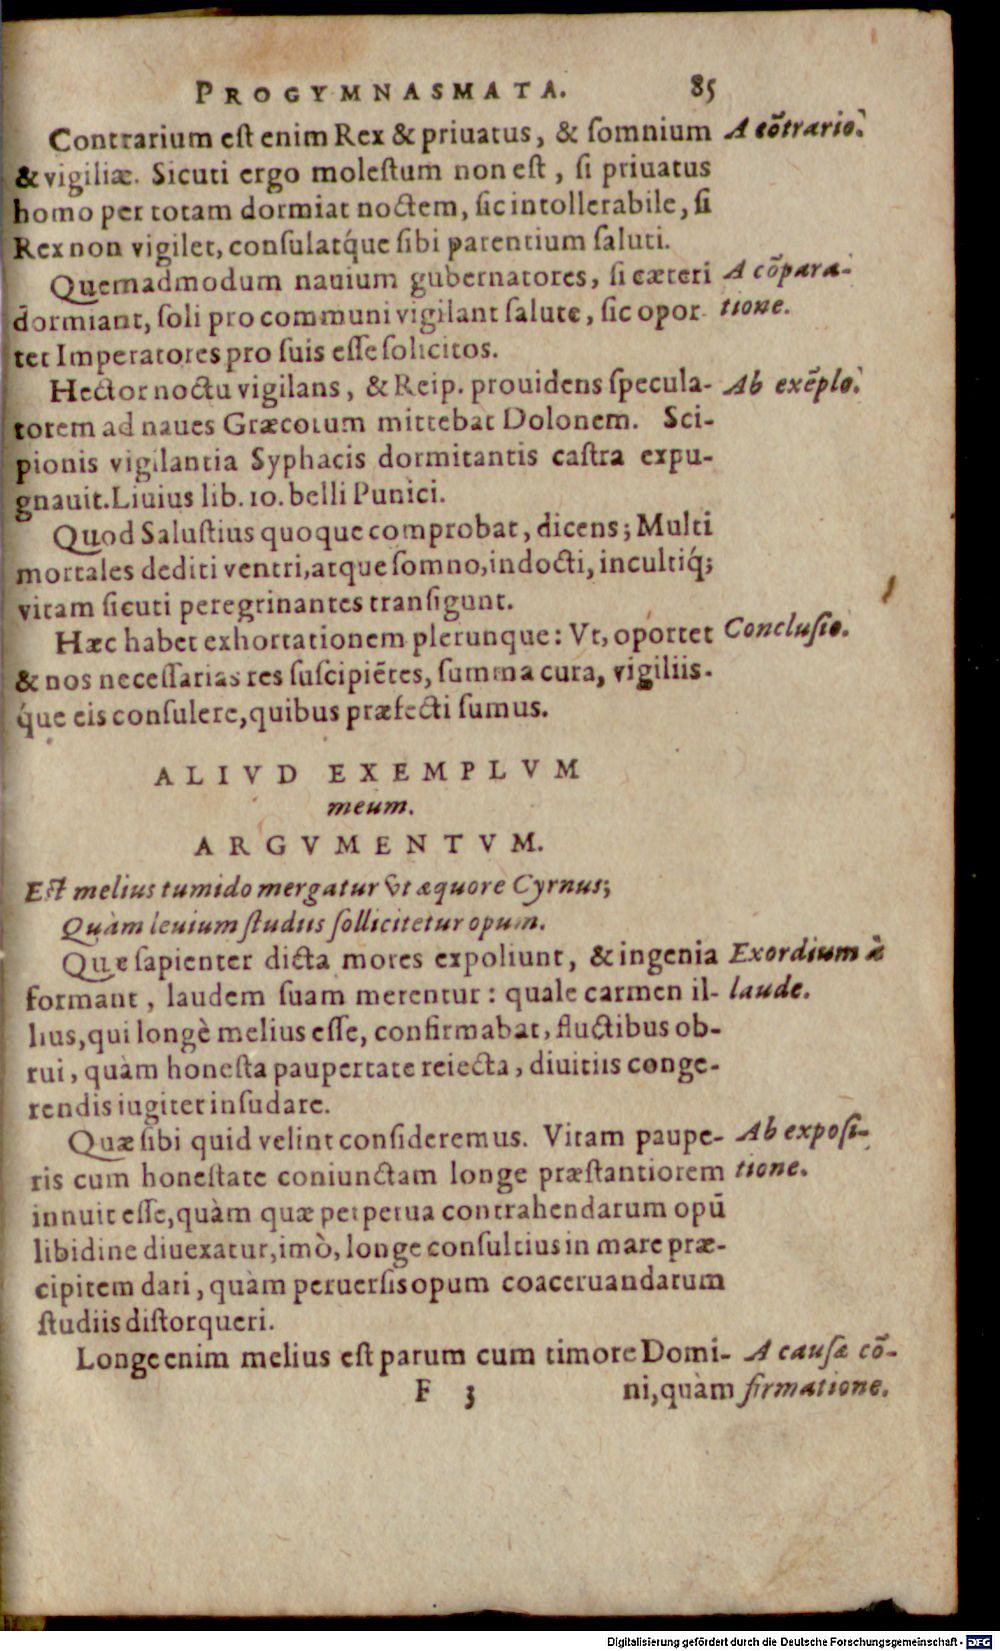 PROGYMNASMATA. 85
Contrarium eſt enim Rex & priuatus, & ſomnium A cõtrario.
& vigiliæ. Sicuti ergo moleſtum non eſt, ſi priuatus
homo per totam dormiat noctem, ſic intollerabile, ſi
Rex non vigilet, conſulatq́ue ſibi parentium ſaluti.
Quemadmodum nauium gubernatores, ſi cæteri A cõpara-
dormiant, ſoli pro communi vigilant ſalute, ſic opor- tione.
tet Imperatores pro ſuis eſſe ſolicitos.
Hector noctu vigilans, & Reip. prouidens ſpecula- Ab exẽplo.
torem ad naues Græcorum mittebat Dolonem. Sci-
pionis vigilantia Syphacis dormitantis caſtra expu-
gnauit. Liuius lib. 10. belli Punici.
Quod Saluſtius quoque comprobat, dicens; Multi
mortales dediti ventri, atque ſomno, indocti, incultiq́;
vitam ſicuti peregrinantes tranſigunt.
Hæc habet exhortationem plerunque: Vt, oportet Concluſio.
& nos neceſſarias res ſuſcipiẽtes, ſumma cura, vigiliis-
q́ue eis conſulere, quibus præfecti ſumus.
ALIVD EXEMPLVM
meum.
ARGVMENTVM.
Eſt melius tumido mergatur vt æquore Cyrnus;
Quàm leuium ſtudiis ſollicitetur opum.
Quæ ſapienter dicta mores expoliunt, & ingenia Exordium à
formant, laudem ſuam merentur: quale carmen il- laude.
lius, qui longè melius eſſe, confirmabat, fluctibus ob-
rui, quàm honeſta paupertate reiecta, diuitiis conge-
rendis iugiter inſudare.
Quæ ſibi quid velint conſideremus. Vitam paupe- Ab expoſi-
ris cum honeſtate coniunctam longe præſtantiorem tione.
innuit eſſe, quàm quæ perpetua contrahendarum opũ
libidine diuexatur, imò, longe conſultius in mare præ-
cipitem dari, quàm peruerſis opum coaceruandarum
ſtudiis diſtorqueri.
Longe enim melius eſt parum cum timore Domi- A cauſæ cõ-
F 3 ni, quàm firmatione.
Digitalisierung gefördert durch die Deutsche Forschungsgemeinschaft - DFG